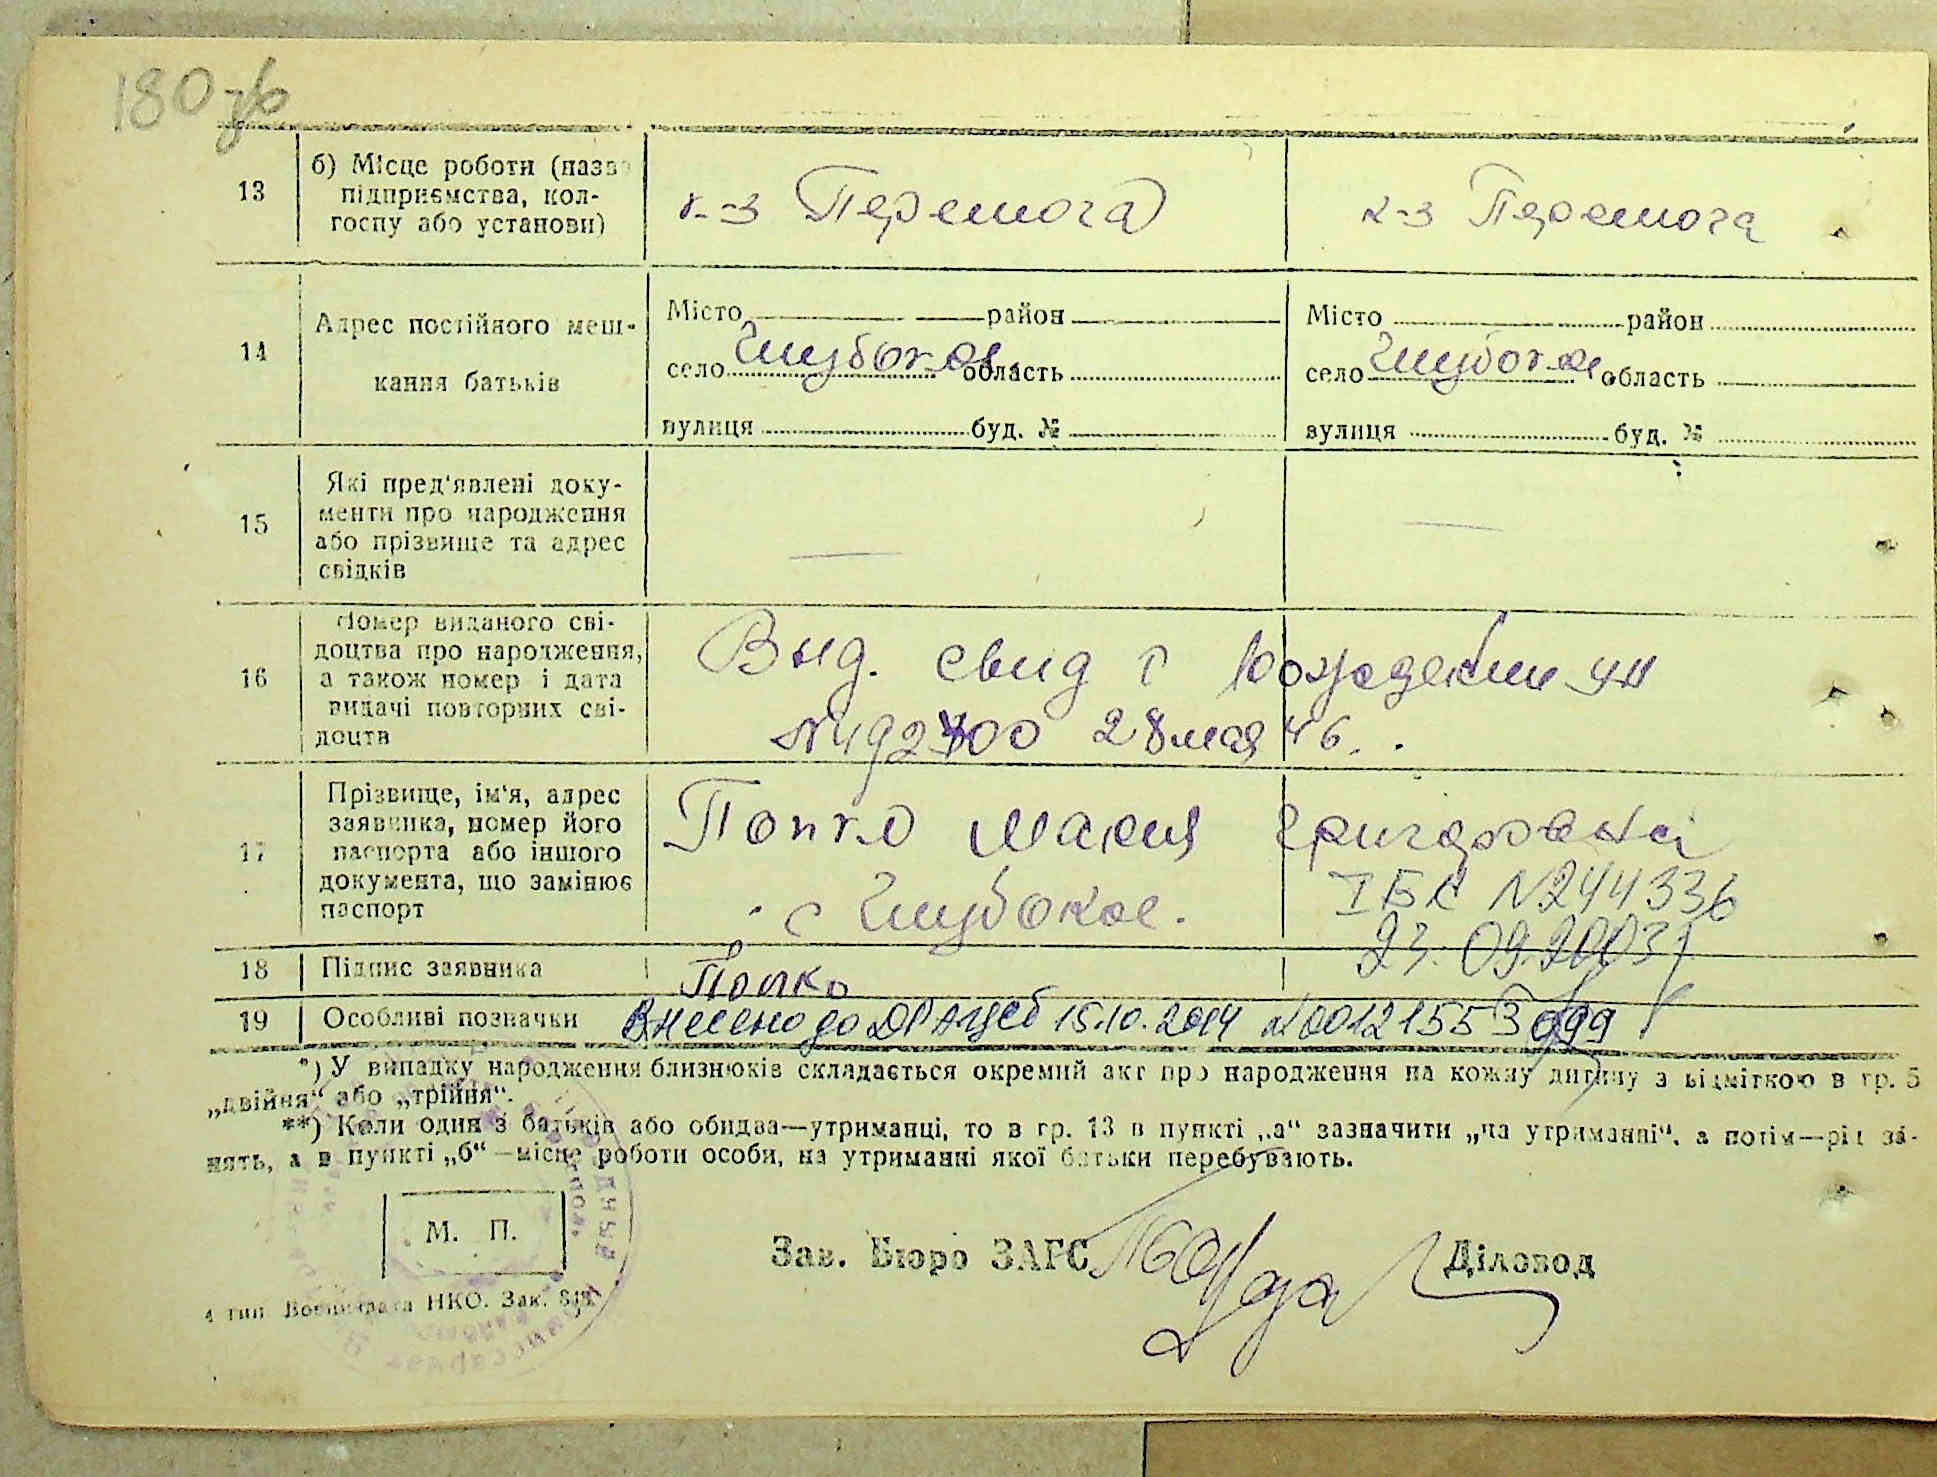 180 зв
13
б) Місце роботи (назва
підприємства, кол-
госпу або установи)
к-з Перемога
к-з Перемога
14
Адрес постійного меш-
кання батьків
Місто район
село Глубокое область
вулиця буд. №
Місто район
село Глубокое область
вулиця буд. №
15
Які пред'явлені доку-
менти про народження
або прізвище та адрес
свідків
16
Номер виданого сві-
доцтва про народження,
а також номер і дата
видачі повторних сві-
доцтв
Выд. свид о рождении
28 мая 46.
17
Прізвище, ім'я, адрес
заявника, номер його
паспорта або іншого
документа, що замінює
паспорт
Попко Мария Григоровна
с Глубокое.
І БК №244336
23.09.2003
18
Підпис заявника
Попко
19
Особливі позначки
Внесено до ДРАЦСб 15.10.2014 №00121553099
*) У випадку народження близнюків складається окремий акт про народження на кожну дитину з відміткою в гр. 5
„двійня“ або „трійня“.
**) Коли один з батьків або обидва—утриманці, то в гр. 13 в пункті „а“ зазначити „на утриманні“, а потім—рід за-
нять, а в пункті „б“—місце роботи особи, на утриманні якої батьки перебувають.
М. П.
Зав. Бюро ЗАГС
Діловод
4 тип. Воениздата НКО. Зак.